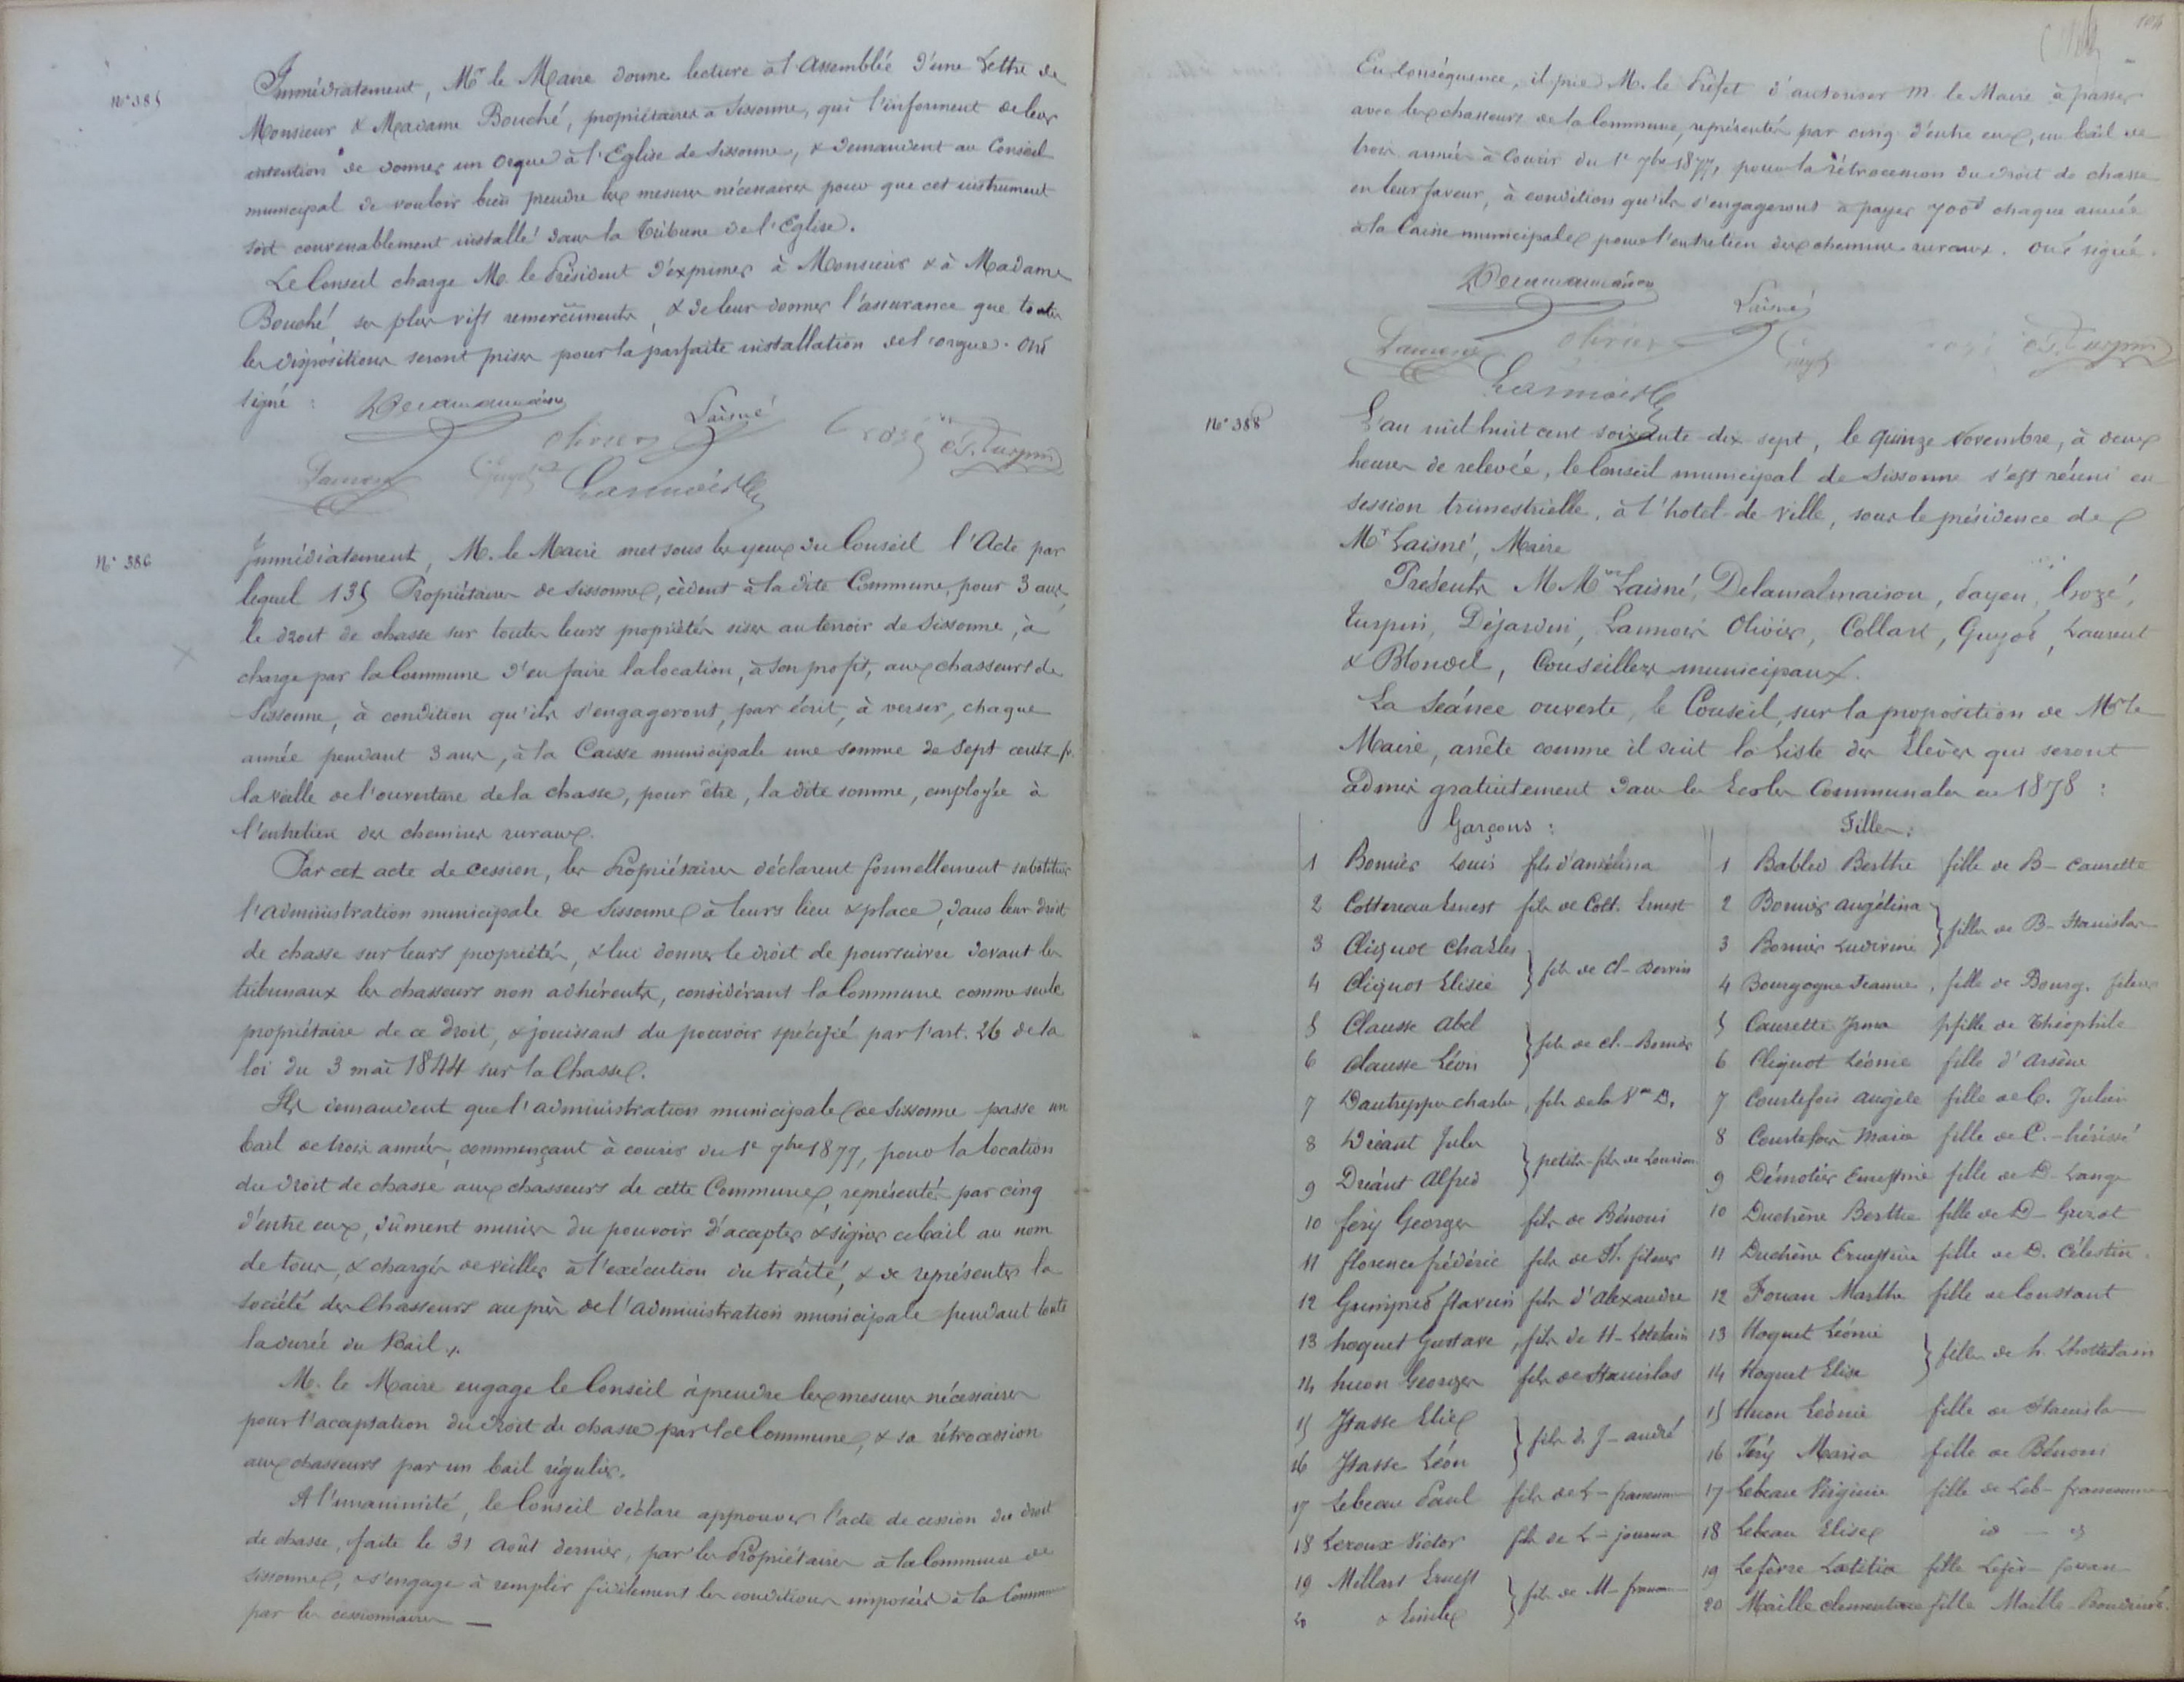 N° 385
Immédiatement, Mr le Maire donne lecture à l'Assemblée d'une Lettre de
Monsieur & Madame Bouché, propriétaires à Sissonne, qui l'informent de leur
intention de donner un Orgue à l'Eglise de Sissonne, & demandent au Conseil
municipal de vouloir bien prendre les mesures nécessaires pour que cet instrument
soit convenablement installé dans la Tribune de l'Eglise.
Le Conseil charge M. le Président d'exprimer à Monsieur & à Madame
Bouché ses plus vifs remercîments, & de leur donner l'assurance que toutes
les dispositions seront prises pour la parfaite installation de l'orgue. Ont
signé :
Delamalmaison
Laisné
Olivier
Crozé
Turpin
Guyot
Lannois
N° 386
Immédiatement, M. le Maire met sous les yeux du Conseil l'Acte par
lequel 135 Propriétaires de Sissonne, cèdent à la dite Commune, pour 3 ans,
le droit de chasse sur toutes leurs propriétés sises au terroir de Sissonne, à
charge par la Commune d'en faire la location, à son profit, aux chasseurs de
Sissonne, à condition qu'ils s'engageront, par écrit, à verser, chaque
année pendant 3 ans, à la Caisse municipale une somme de sept cents fr.
la veille de l'ouverture de la chasse, pour être, la dite somme, employée à
l'entretien des chemins ruraux.
Par cet acte de cession, les Propriétaires déclarent formellement substituer
l'administration municipale de Sissonne à leurs lieu & place, dans leur droit
de chasse sur leurs propriétés, & lui donner le droit de poursuivre devant les
tribunaux les chasseurs non adhérents, considérant la Commune comme seule
propriétaire de ce droit, & jouissant du pouvoir spécifié par l'art. 26 de la
loi du 3 mai 1844 sur la Chasse.
Ils demandent que l'administration municipale de Sissonne passe un
bail de trois années, commençant à courir du 1er 7bre 1877, pour la location
du droit de chasse aux chasseurs de cette Commune, représentés par cinq
d'entre eux, dûment munis du pouvoir d'accepter & signer ce bail au nom
de tous, & chargés de veiller à l'exécution du traité, & de représenter la
société des Chasseurs auprès de l'administration municipale pendant toute
la durée du Bail.
M. le Maire engage le Conseil à prendre les mesures nécessaires
pour l'acceptation du droit de chasse par la Commune, & sa rétrocession
aux chasseurs par un bail régulier.
A l'unanimité, le Conseil déclare approuver l'acte de cession du droit
de chasse, faite le 31 Août dernier, par les Propriétaires à la Commune de
Sissonne, & s'engage à remplir fidèlement les conditions imposées à la Commune
par les cessionnaires —
104
En conséquence, il prie M. le Préfet d'autoriser M le Maire à passer
avec les chasseurs de la Commune, représentés par cinq d'entre eux, un bail de
trois années à courir du 1er 7bre 1877, pour la rétrocession du droit de chasse
en leur faveur, à condition qu'ils s'engageront à payer 700f chaque année
à la Caisse municipale pour l'entretien des chemins ruraux. Ont signé.
Delamalmaison
Laisné
Olivier
Guyot
Turpin
Lannois
N° 388
L'an mil huit cent soixante-dix sept, le quinze Novembre, à deux
heures de relevée, le Conseil municipal de Sissonne s'est réuni en
session trimestrielle, à l'hotel-de-ville, sous le présidence de
Mr Laisné, Maire
Présents MMrs Laisné, Delamalmaison, Payen, Crozé,
Turpin, Déjardin, Lannois Olivier, Collart, Guyot, Laurent
& Blondel, Conseillers municipaux.
La Séance ouverte, le Conseil, sur la proposition de Mr le
Maire, arrête comme il suit la Liste des Elèves qui seront
admis gratuitement dans les Ecoles Communales en 1878 :
Garçons :
1 Bonnier Louis fils d'Angélina
2 Cottereau Ernest fils de Cott. Ernest
3 Cliquot Charles
4 Cliquot Elisée } fils de Cl-Derrin
5 Clausse Abel
6 Clausse Léon } fils de Cl.-Bonnier
7 Dautreppe Charles, fils de la Vve D.
8 Driant Jules
9 Driant Alfred } petits-fils de
10 fery Georges fils de Bénoni
11 florence frédéric fils de fl. fileur
12 flavien fils d'Alexandre
13 hoquet Gustave, fils de H-
14 huon Georges fils de Stanislas
15 Itasse Elie
16 Itasse Léon } fils d. J-andré
17 Lebeau Paul fils de L-
18 Leroux Victor fils de L-
19 Millart Ernest
20 & Emile } fils de M-
Filles :
1 Berthe fille de B-Caurette
2 Bonnier angélina
3 Bonnier Ludivine } filles de B-Stanislas
4 Bourgogne Jeanne, fille de Bourg. fileur
5 Caurette Irma fille de Théophile
6 Cliquot Léonie fille d'Arsène
7 Courtefois Angèle fille de C. Julien
8 Courtefois Maria fille de C.-hérissé
9 Démotier Ernestine fille de D-Lange
10 Duchêne Berthe fille de D-
11 Duchêne Ernestine fille de D. Célestin
12 Fouan Marthe fille de Constant
13 Hoquet Léonie
14 Hoquet Elise } filles de h. Lhottelain
15 Huon Léonie fille de Stanislas
16 Féry Maria fille de Bénoni
17 Lebeau Virginie fille de Leb-
18 Lebeau Elise id — id
19 Lefèvre Lætitia fille Lefèv-fouan
20 Maille clementine fille Maille-